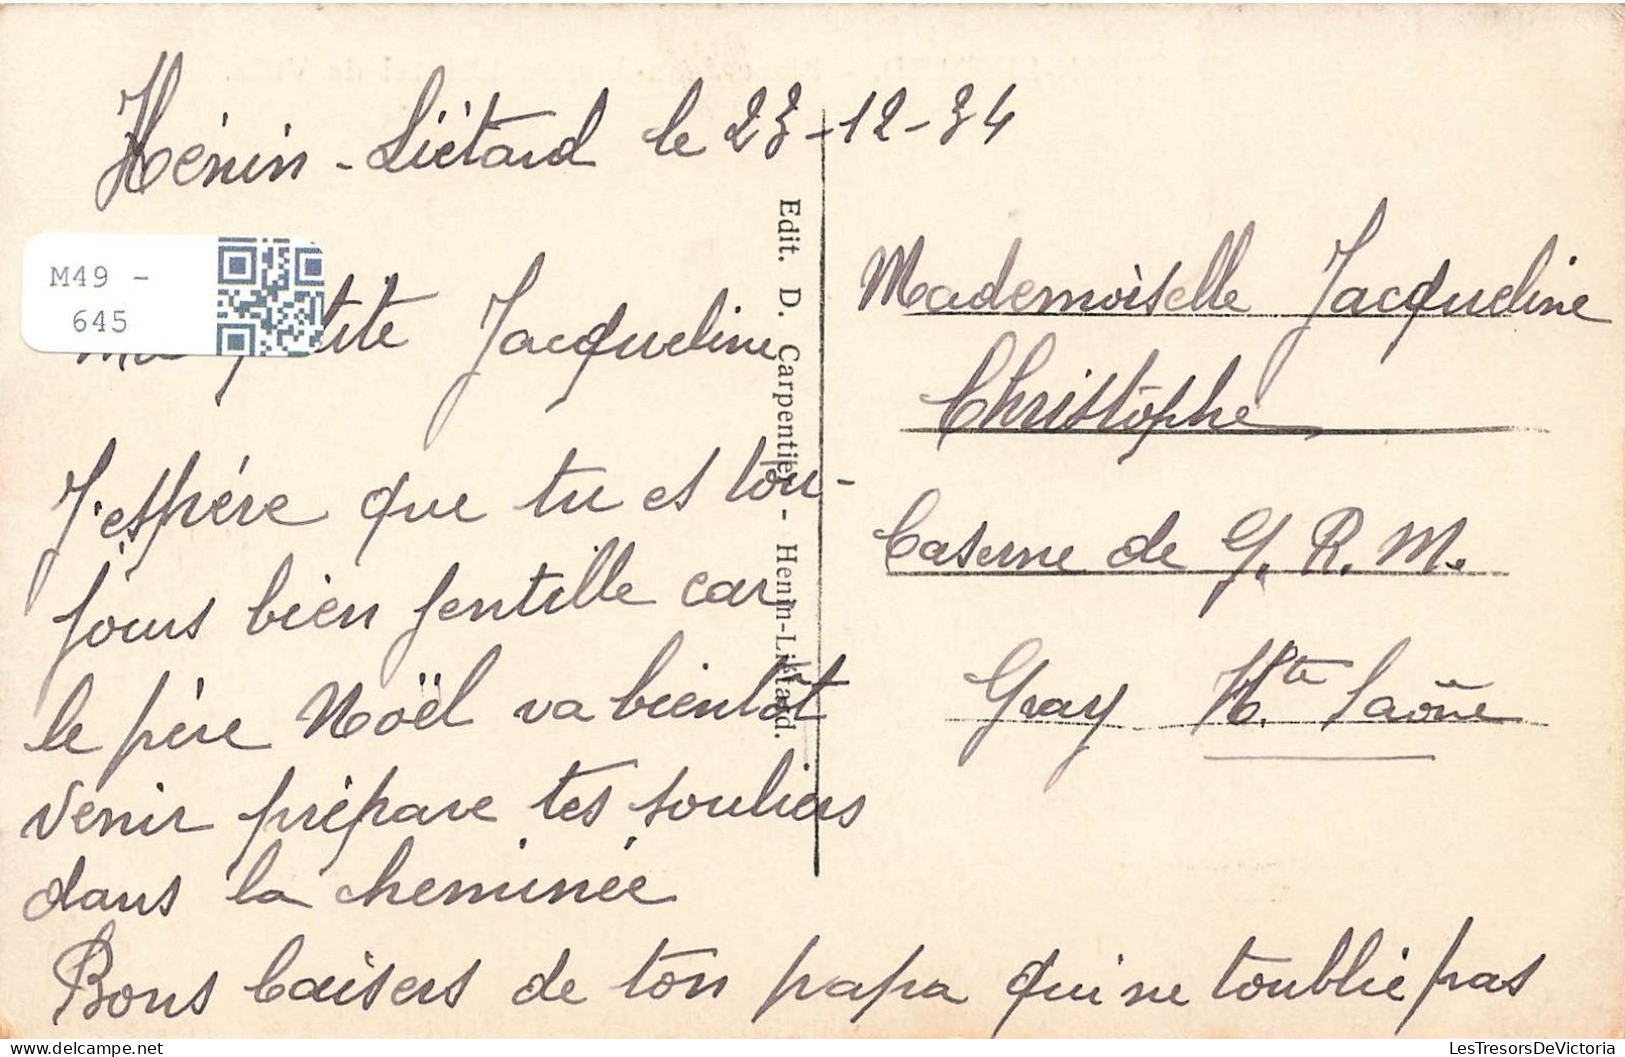 Hénin-Liétard le 23-12-34
M49 -
645
Ma petite Jacqueline
J'espère que tu es tou-
jours bien gentille car
le père Noël va bientôt
venir prépare tes souliers
dans la cheminée
Bons baisers de ton papa qui ne t'oublie pas
Edit. D. Carpentier - Henin-Liétard.
Mademoiselle Jacqueline
Christophe
Caserne de G. R. M.
Gray Hte. Saône
LesTresorsDeVictoria